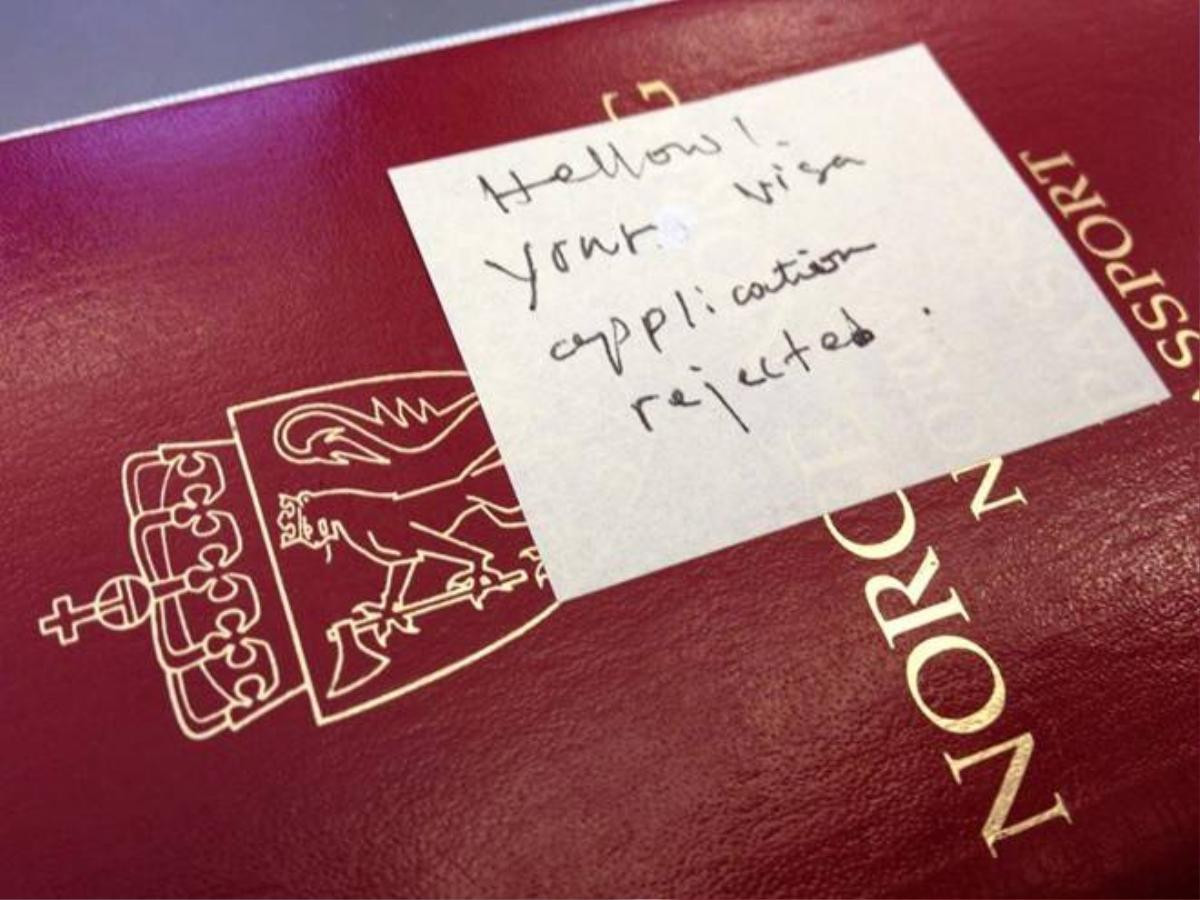 Hellow!
your visa
application
rejected.
NORG
NOR
PASSPORT